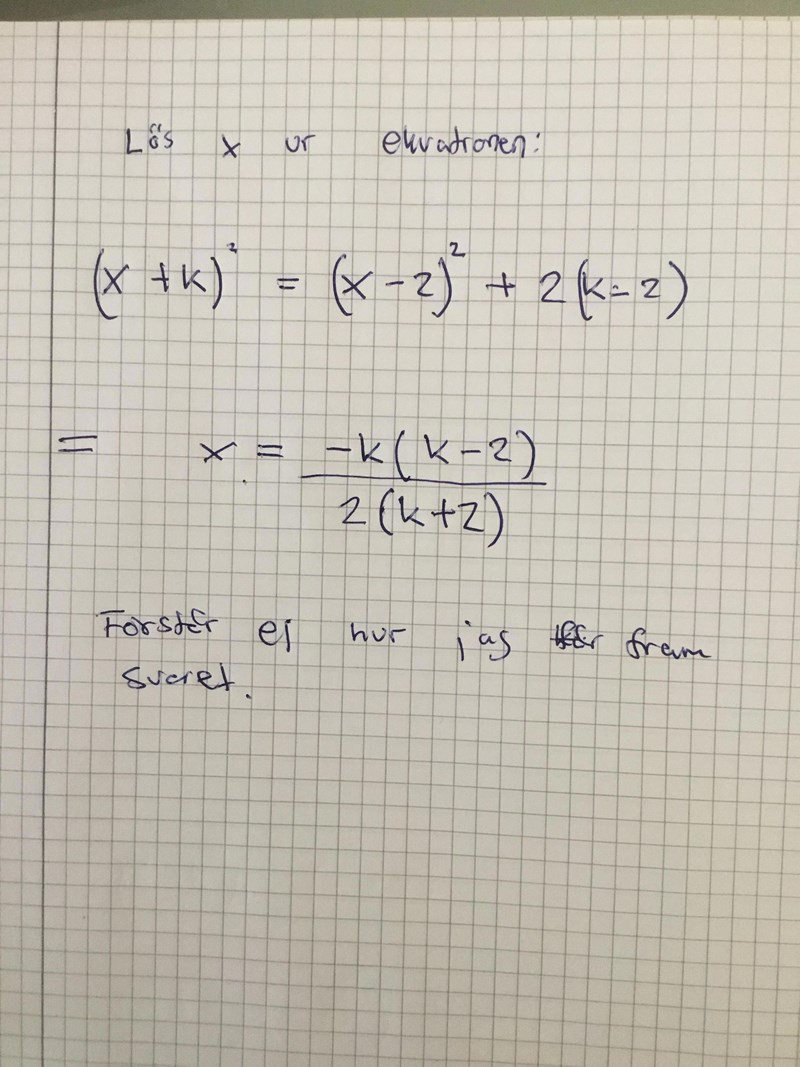 Lös x ur ekvationen:
(x + k)² = (x - 2)² + 2(k - 2)
= x = -k(k - 2) / 2(k + 2)
Förstår ej hur jag får fram
svaret.